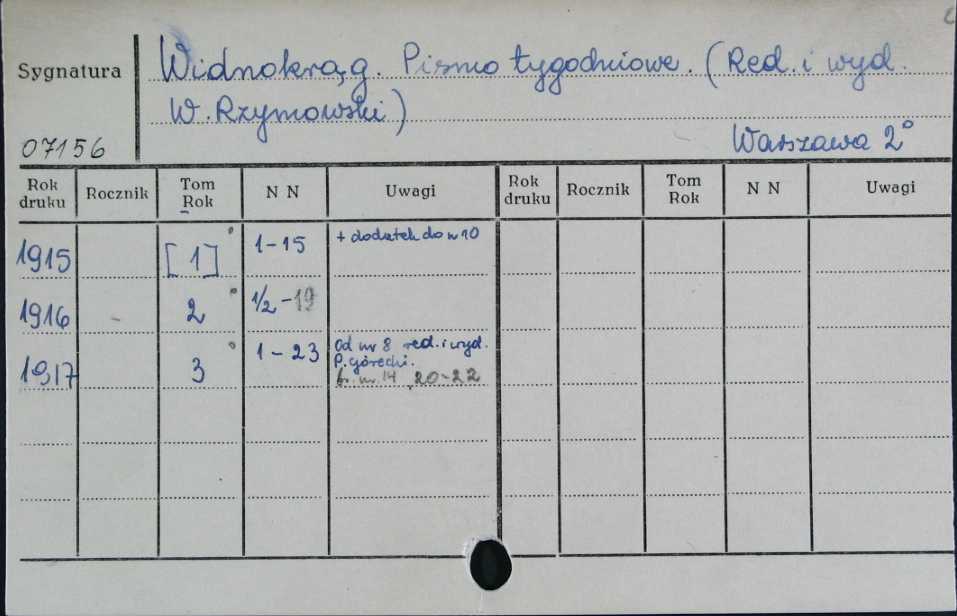 Sygnatura
07156
Widnokrąg. Pismo tygodniowe. (Red. i wyd.
W. Rzymowski)
Warszawa 2°
Rok druku Rocznik Tom Rok N N Uwagi Rok druku Rocznik Tom Rok N N Uwagi
1915 [1] 1-15 + dodatek do nr 10
1916 2 1/2-19
1917 3 1-23 Od nr 8 red. i wyd.
P. Górecki.
b. nr. 14, 20-22